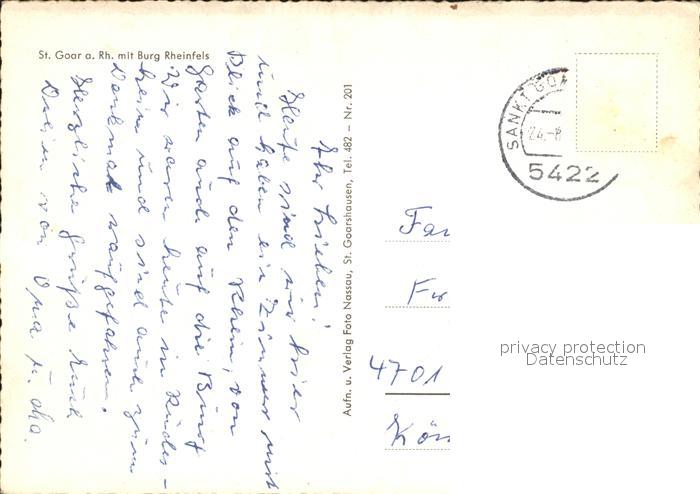 St. Goar a. Rh. mit Burg Rheinfels
Ihr Lieben!
Heute sind wir hier
und haben ein Zimmer mit
Blick auf den Rhein, vom
Garten auch auf die Burg
Wir waren heute in Rüdes-
heim und sind auch zum
Denkmal raufgefahren.
Herzliche Grüße Euch
Dreien von Oma u. Opa.
Aufn. u. Verlag Foto Nassau, St. Goarshausen, Tel. 482 – Nr. 201
SANKT GOA
24.-8
5422
Fa
Fr
4701
Kön
privacy protection
Datenschutz